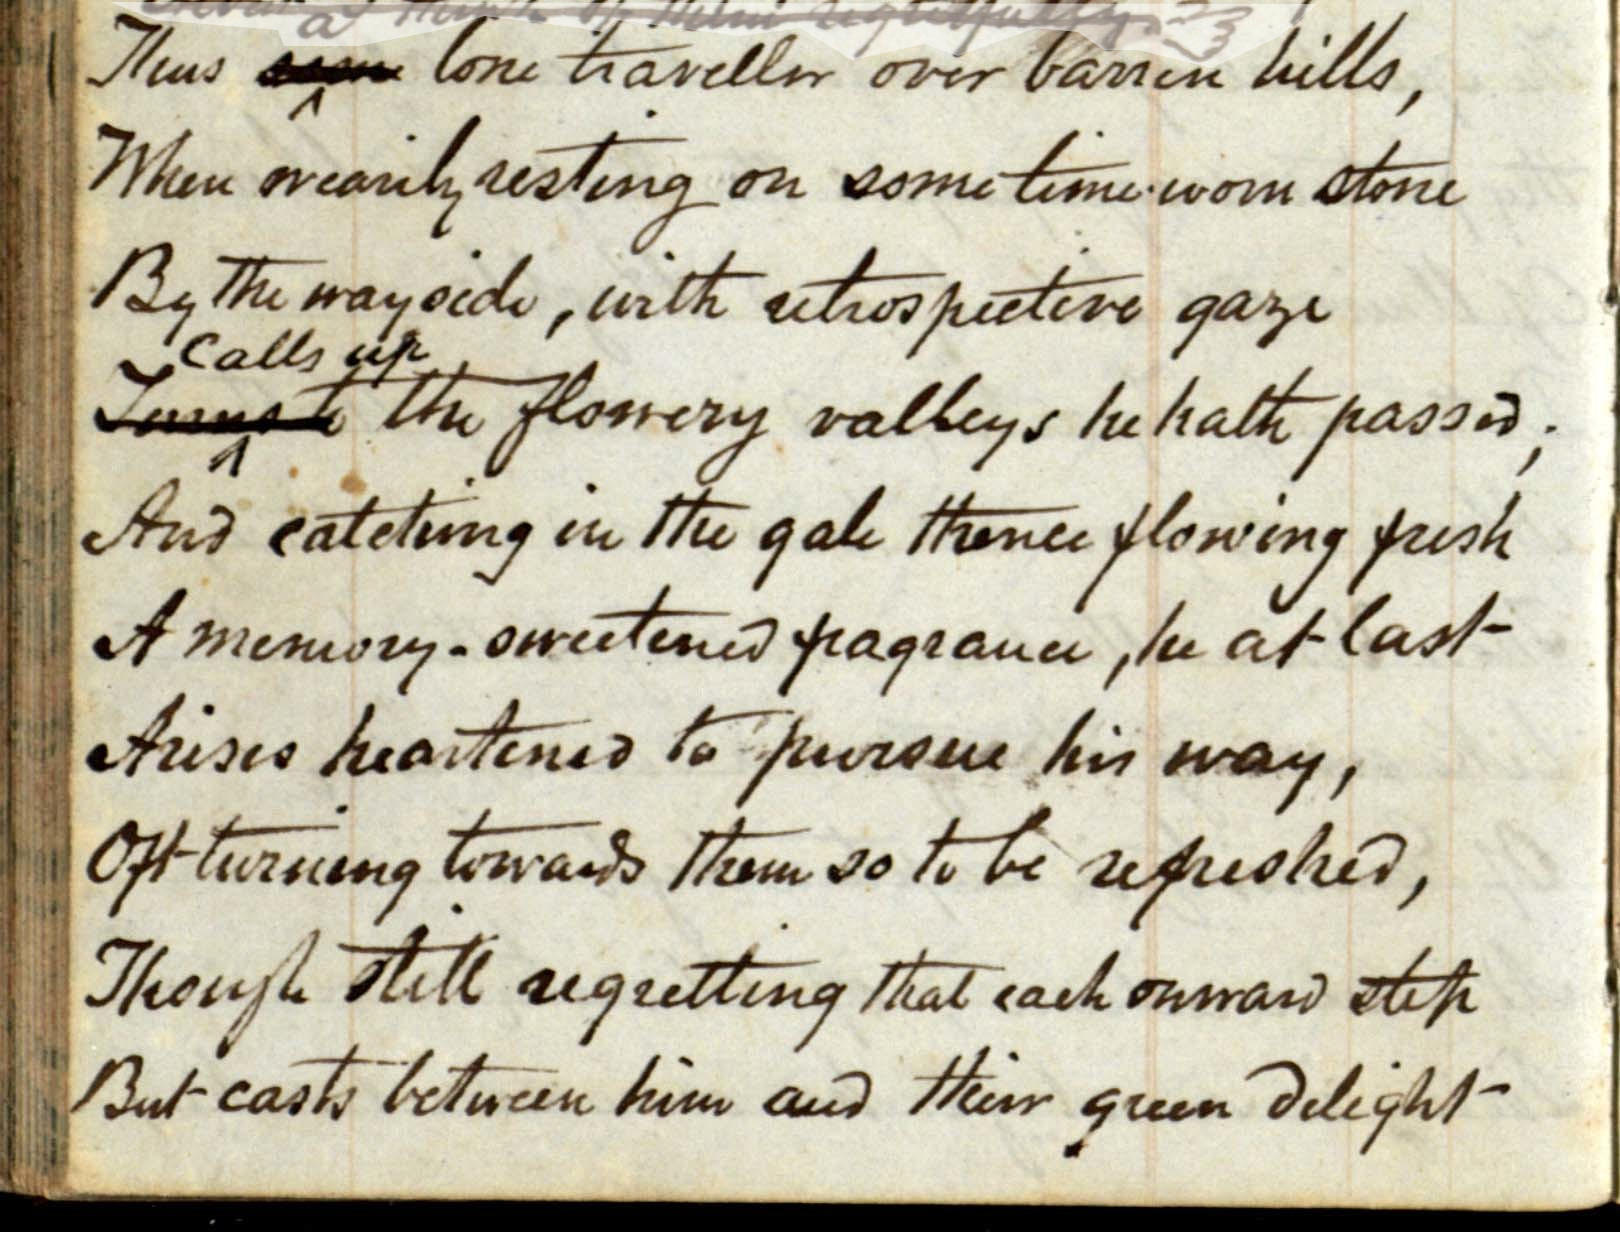 a think of them regretfully
Thus some lone traveller over barren hills,
When wearily resting on some time-worn stone
By the wayside, with retrospective gaze
Calls up
Turns to the flowery valleys he hath passed;
And catching in the gale thence flowing fresh
A memory-sweetened fragrance, he at last
Arises heartened to pursue his way,
Oft turning towards them so to be refreshed,
Though still regretting that each onward step
But casts between him and their green delight